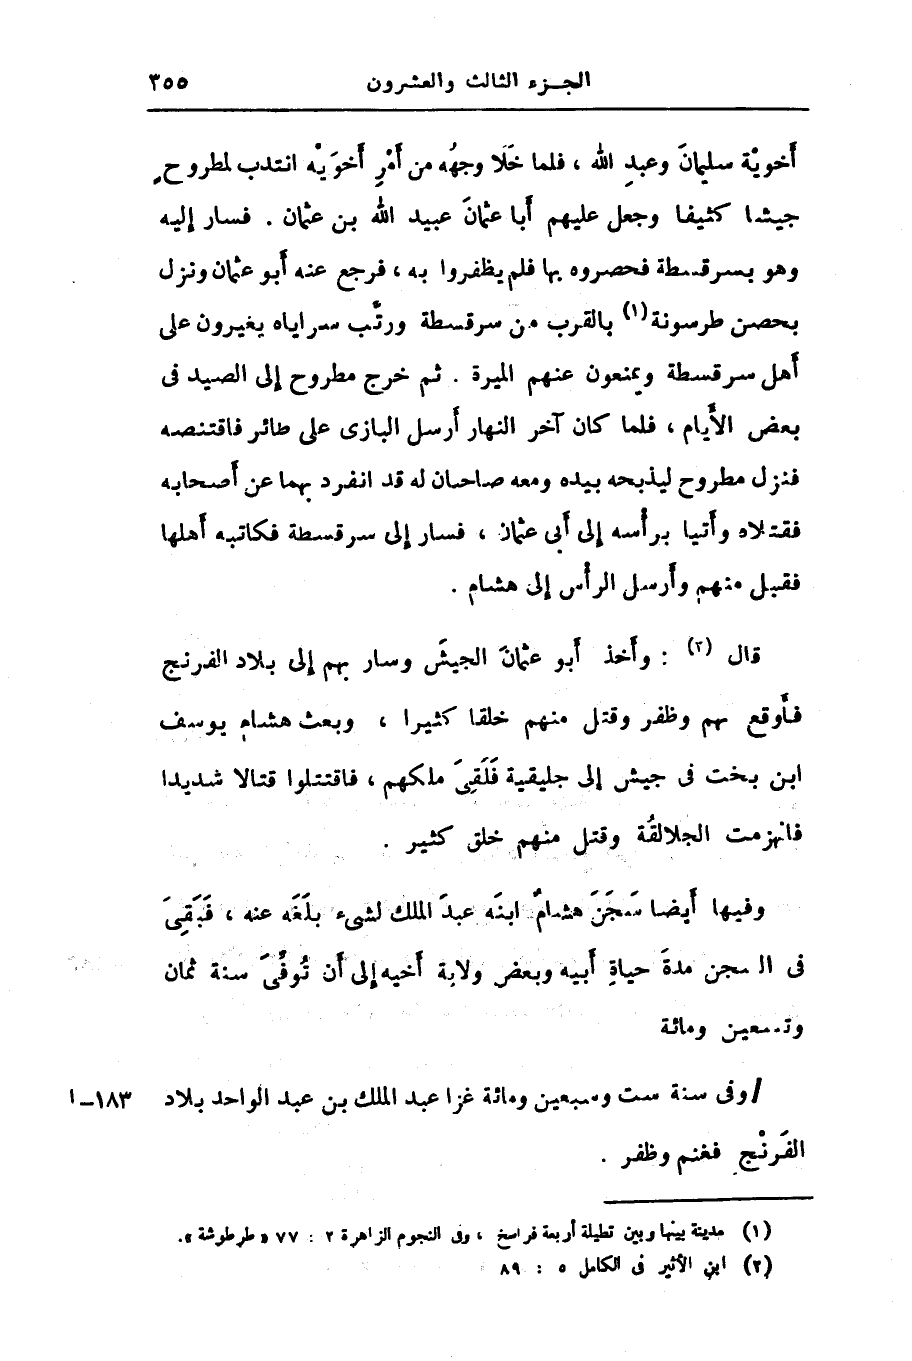 الجزء الثالث والعشرون ٣٥٥
أخويْة سليمانَ وعبدِ الله ، فلما خَلَا وجهُه من أَمْرِ أخوَيْه انتدب لمطروحٍ
جيشا كثيفا وجعل عليهم أبا عثمانَ عبيد الله بن عثمان . فسار إليه
وهو بسرقسطة فحصروه بها فلم يظفروا به ، فرجع عنه أبو عثمان ونزل
بحصن طرسونة (١) بالقرب من سرقسطة ورتَّب سراياه يغيرون على
أهل سرقسطة ويمنعون عنهم الميرة . ثم خرج مطروح إلى الصيد فى
بعض الأَيام ، فلما كان آخر النهار أرسل البازى على طائر فاقتنصه
فنزل مطروح ليذبحه بيده ومعه صاحبان له قد انفرد بهما عن أصحابه
فقتلاه وأتيا برأسه إلى أبى عثمان ، فسار إلى سرقسطة فكاتبه أهلها
فقبل منهم وأرسل الرأس إلى هشام .
قال (٢) : وأخذ أبو عثمانَ الجيشَ وسار بهم إلى بلاد الفرنج
فأوقع بهم وظفر وقتل منهم خلقا كثيرا ، وبعث هشام يوسف
ابن بخت فى جيش إلى جليقية فَلَقِىَ ملكهم ، فاقتتلوا قتالا شديدا
فانهزمت الجلالقُة وقتل منهم خلق كثير .
وفيها أيضا سَجَنَ هشامٌ ابنَه عبدَ الملك لشىء بلَغَه عنه ، فَبَقِىَ
فى السجن مدةَ حياةِ أبيه وبعض ولاية أخيه إلى أن تُوفِّىَ سنة ثمان
وتسعين ومائة
/ وفى سنة ست وسبعين ومائة غزا عبد الملك بن عبد الواحد بلاد ١٨٣ـ ا
الفَرنْج فغنم وظفر .
(١) مدينة بينها وبين تطيلة أربعة فراسخ ، وفى النجوم الزاهرة ٢ : ٧٧ « طرطوشة ».
(٢) ابن الأثير فى الكامل ٥ : ٨٩